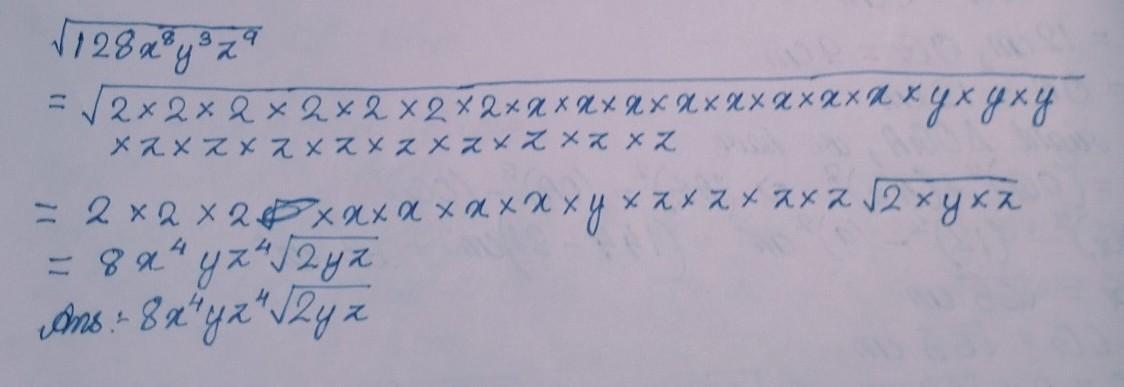 √128x⁸y³z⁹
= √2×2×2×2×2×2×2×x×x×x×x×x×x×x×x×y×y×y
×z×z×z×z×z×z×z×z×z
= 2×2×2×x×x×x×x×y×z×z×z×z√2×y×z
= 8x⁴yz⁴√2yz
Ans:- 8x⁴yz⁴√2yz